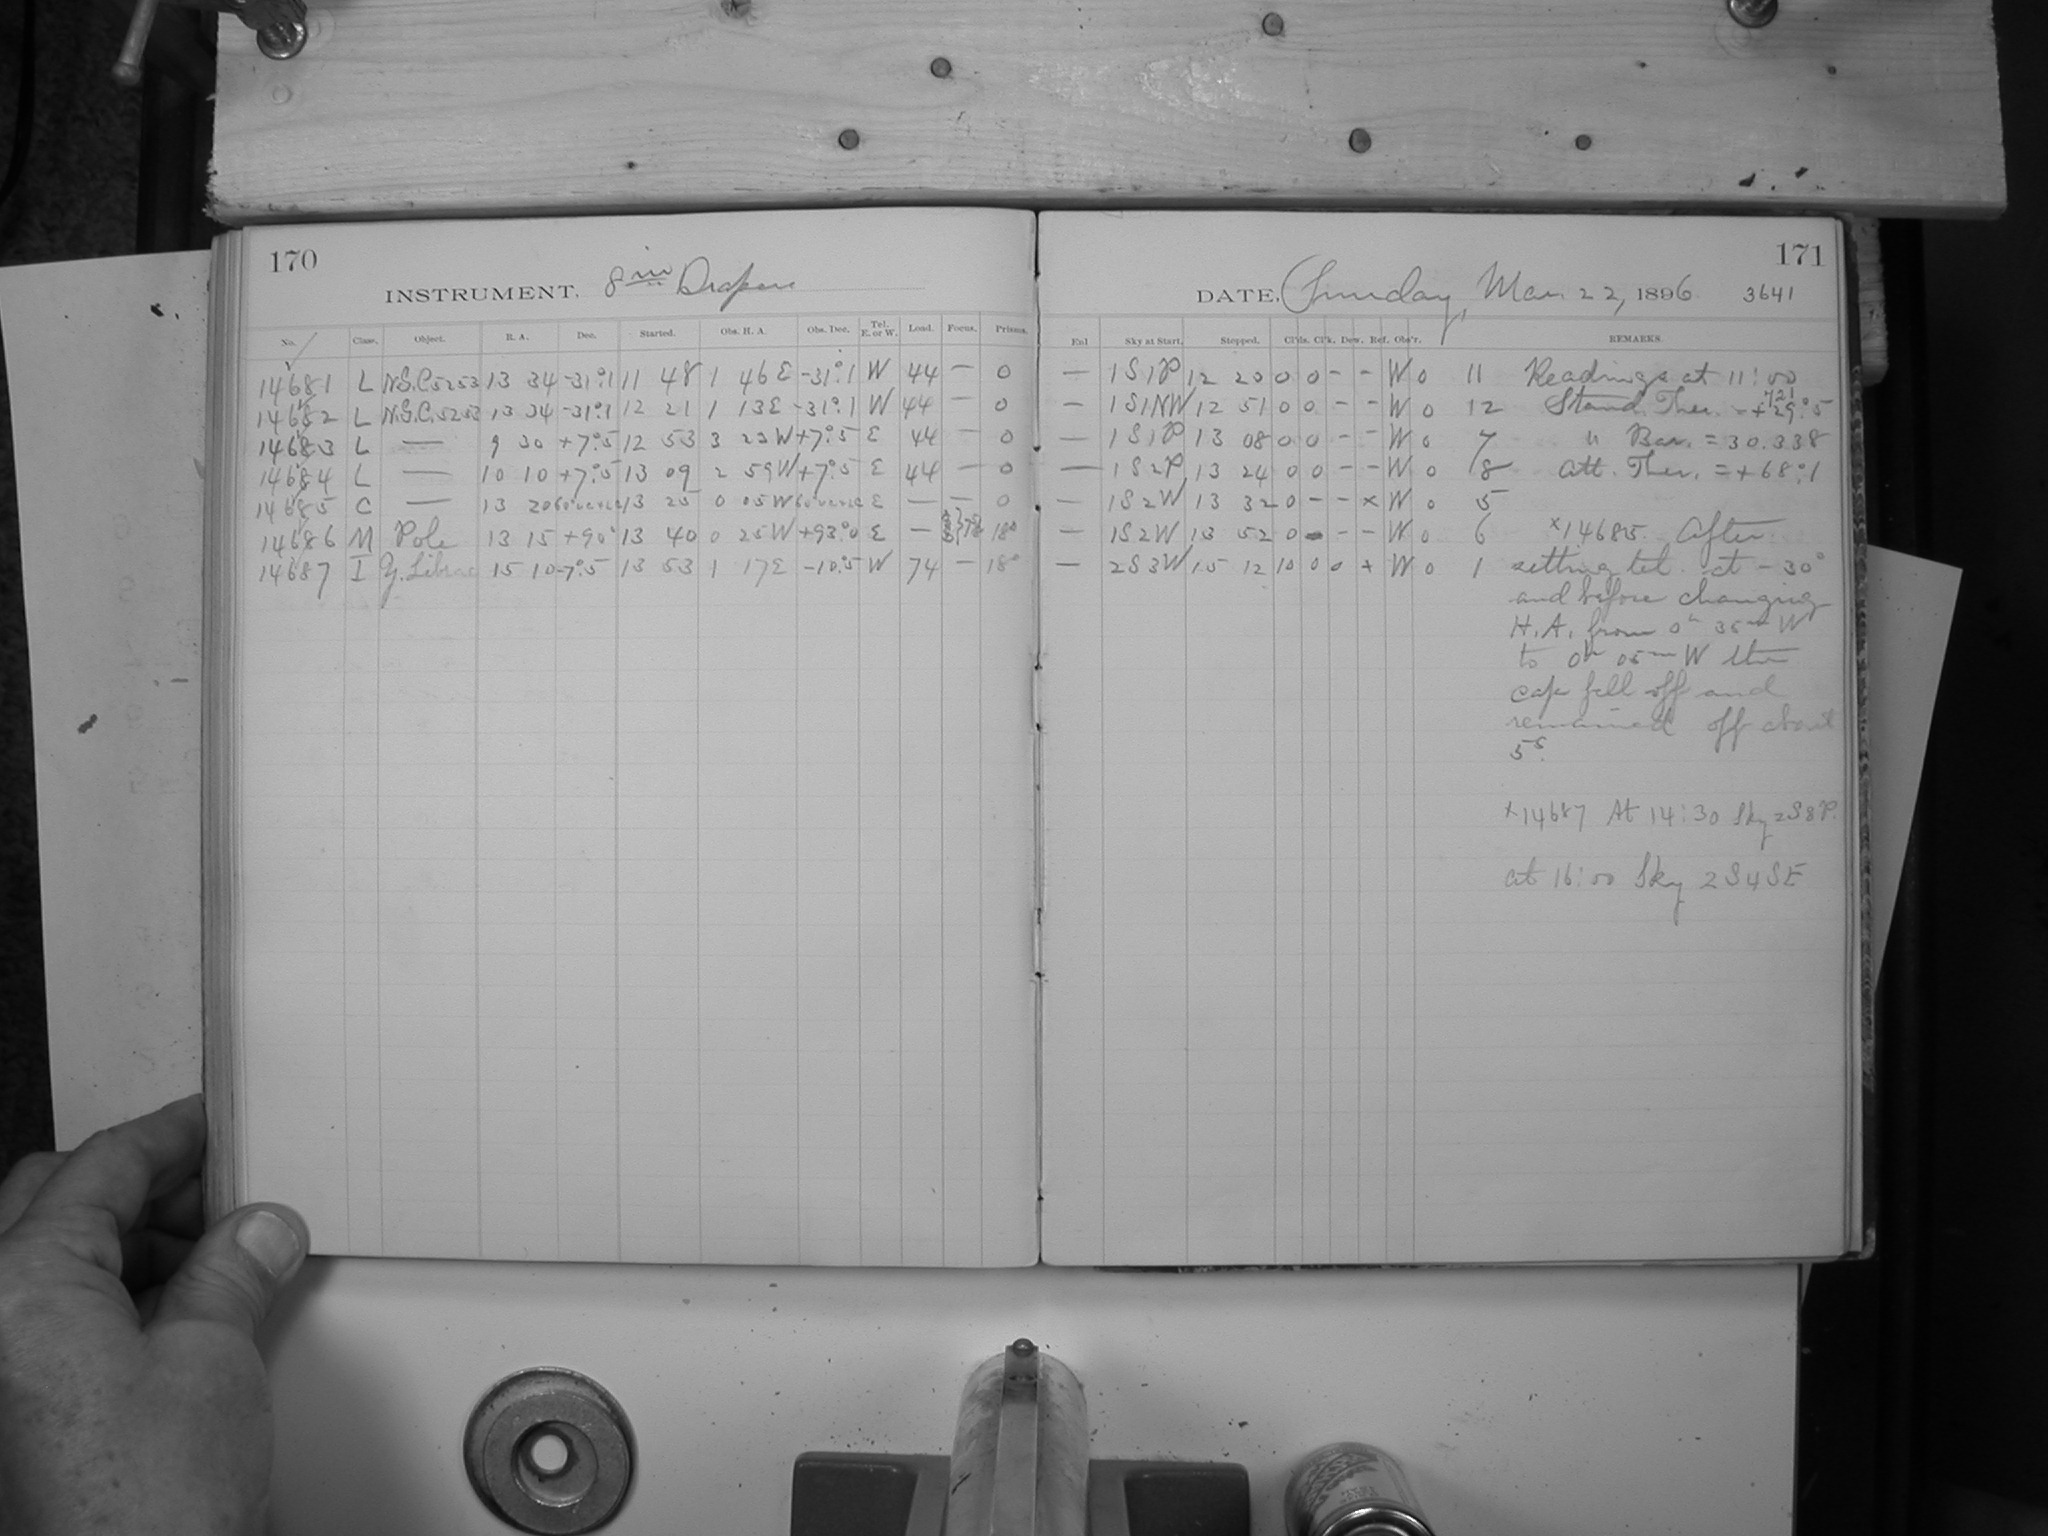 170
INSTRUMENT, 8 in Draper
No. Class. Object. R. A. Dec. Started. Obs. H. A. Obs. Dec. Tel. E. or W. Load. Focus. Prisms.
14681 L N.G.C. 5253 13 34 -31°.1 11 48 1 46 E -31°.1 W 44 — 0
14682 L N.G.C. 5253 13 34 -31°.1 12 21 1 13 E -31°.1 W 44 — 0
14683 L — 9 30 +7°.5 12 53 3 23 W +7°.5 E 44 — 0
14684 L — 10 10 +7°.5 13 09 2 59 W +7°.5 E 44 — 0
14685 C — 13 20 13 25 0 05 W E — — 0
14686 M Pole 13 15 +90° 13 40 0 25 W +93°.0 E — 18°
14687 I Libra 15 10 -7°.5 13 53 1 17 E -10°.5 W 74 — 18°
171
DATE, Sunday, Mar. 22, 1896 3641
Enl Sky at Start. Stopped. Cl'ds. Cl'k. Dew. Ref. Obs'r. REMARKS.
— 1S1P 12 20 0 0 - - W 0 11 Readings at 11:00
— 1S1NW 12 51 0 0 - - W 0 12 Stand. Ther. = +29°.5
721
— 1S1P 13 08 0 0 - - W 0 7 " Bar. = 30.338
— 1S2P 13 24 0 0 - - W 0 18 Att. Ther. = +68°.1
— 1S2W 13 32 0 - - x W 0 5
— 1S2W 13 52 0 - - - W 0 6 x14685 After
— 2S3W 15 12 10 0 0 x W 0 1 setting tel. at -30°
and before changing
H.A. from 0h 35m W
to 0h 05m W the
cap fell off and
remained off about
5s.
x14687 At 14:30 Sky 2S8P.
at 16:00 Sky 2S4SE